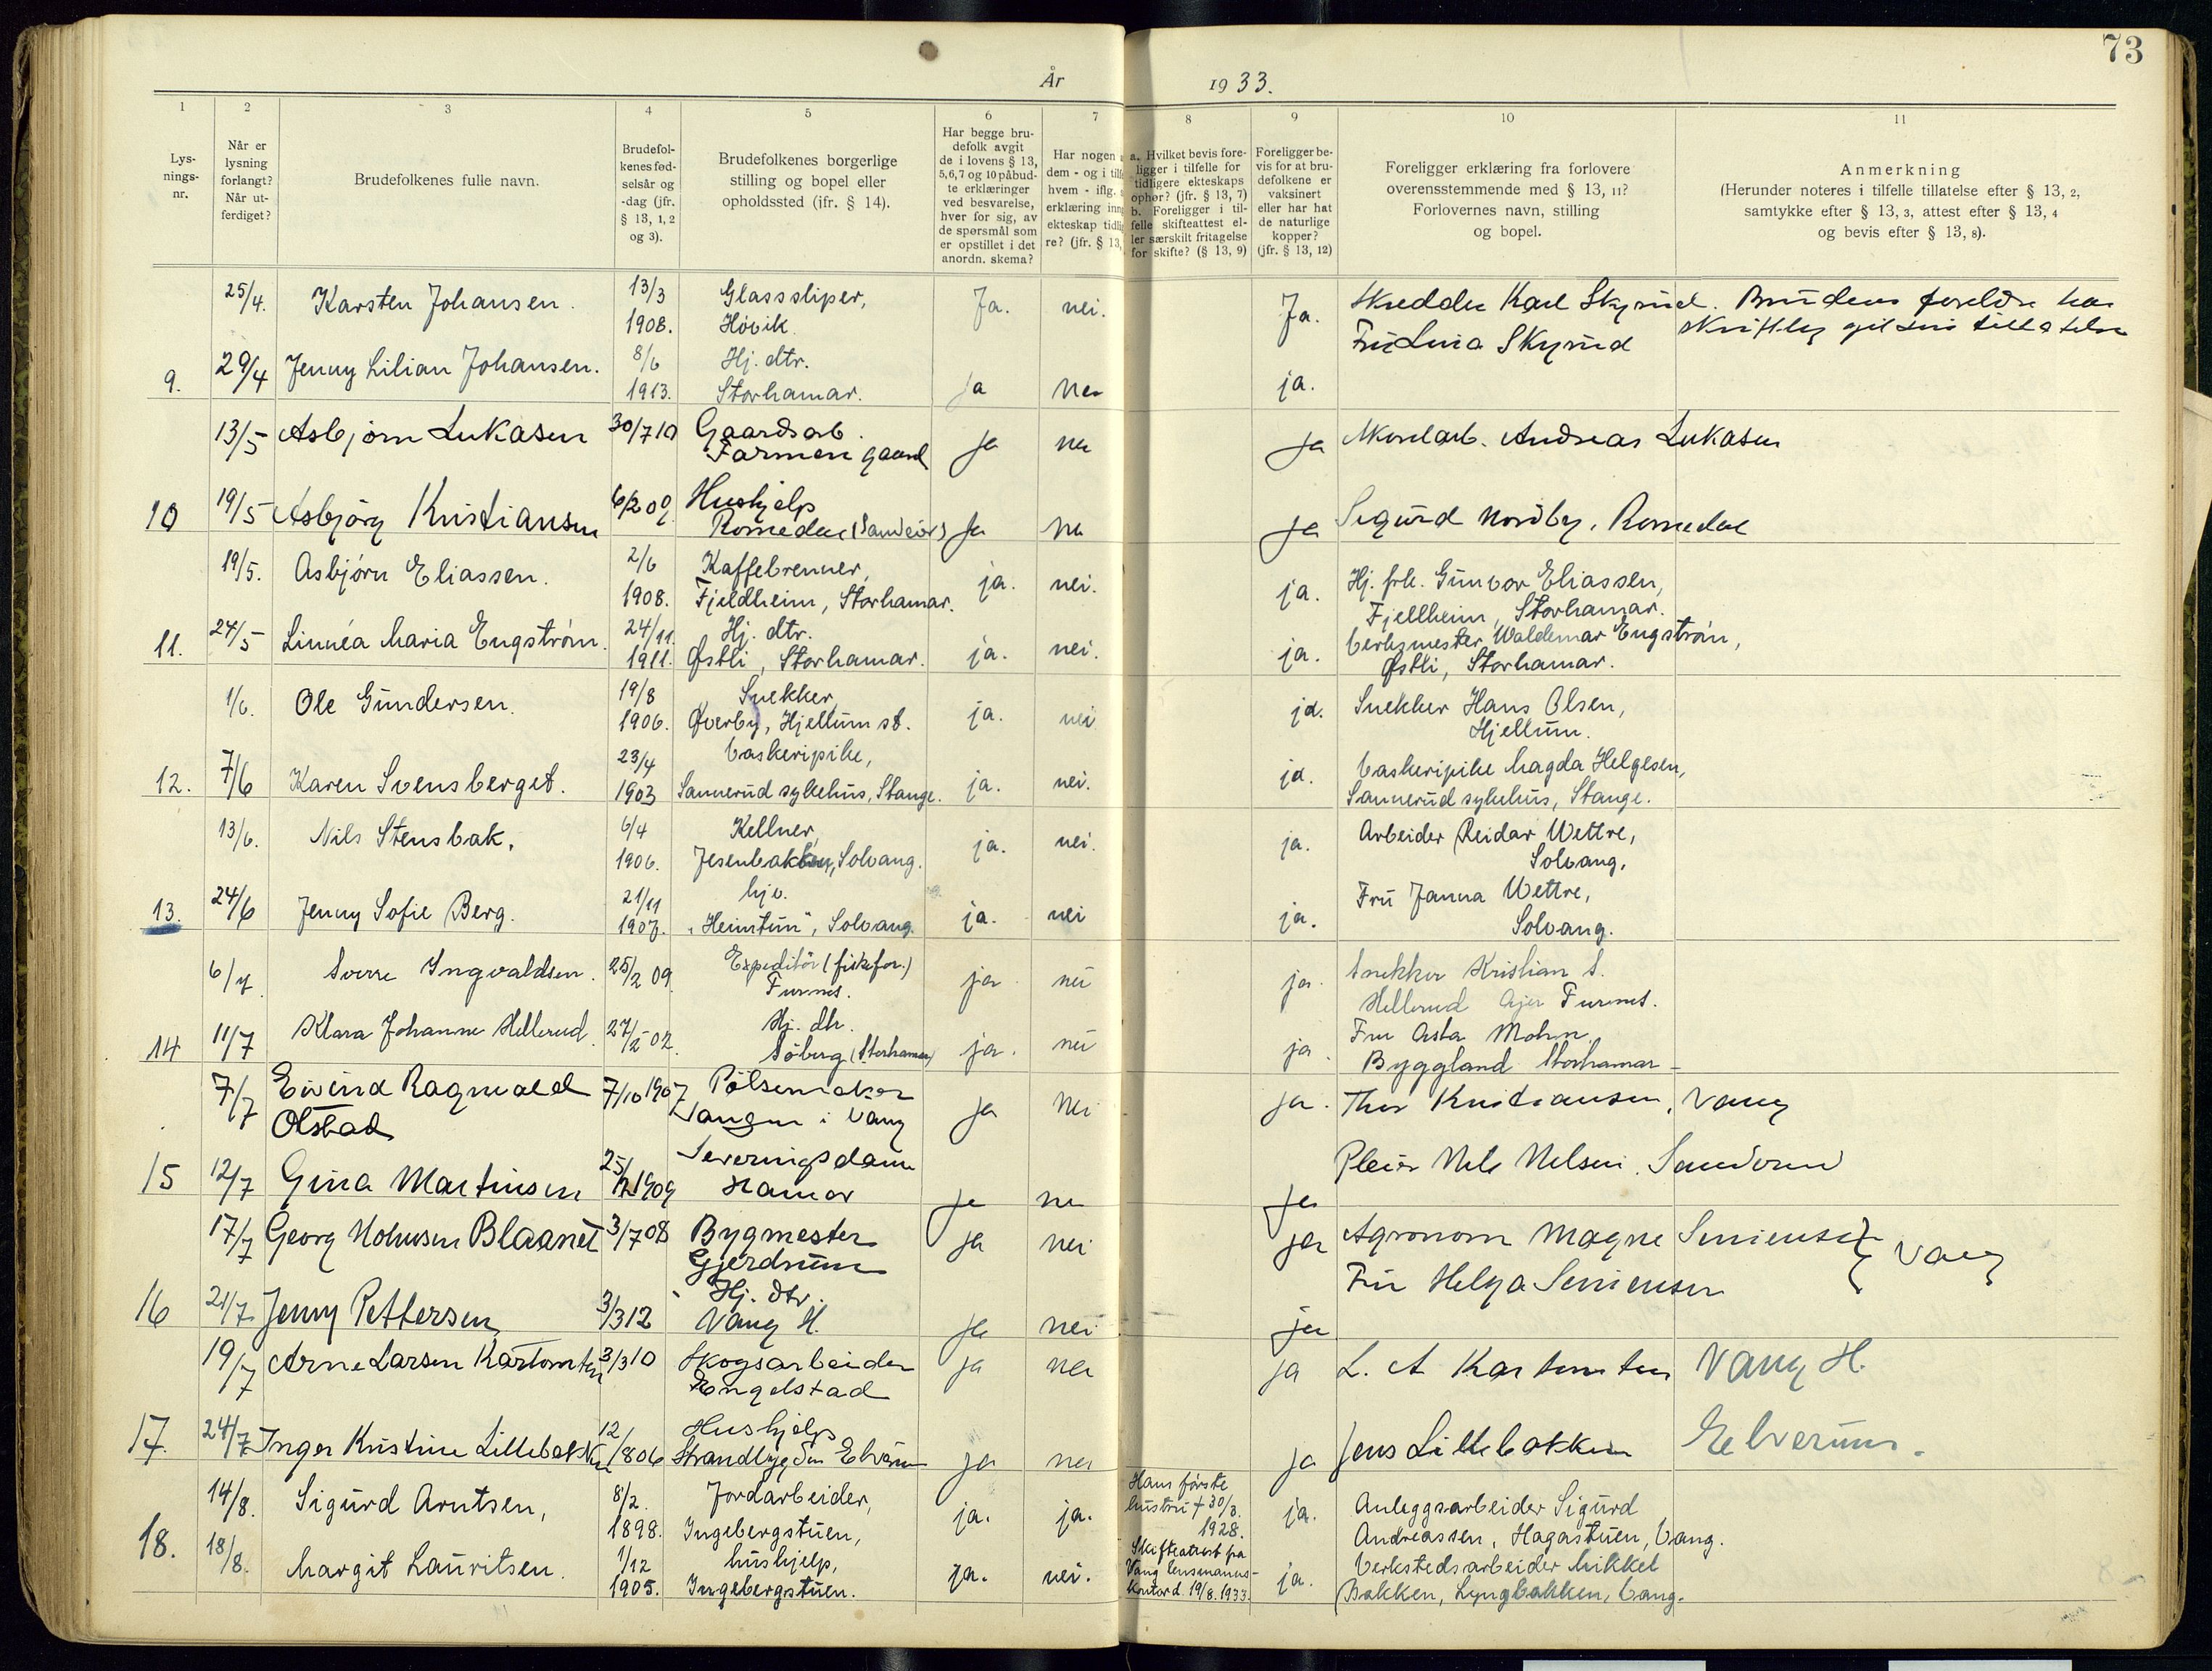 73
År 1933.
1 2 3 4 5 6 7 8 9 10 11
Lysningsnr.
Når er lysning forlangt? Når utferdiget?
Brudefolkenes fulle navn.
Brudefolkenes fødselsår og -dag (jfr. § 13, 1, 2 og 3).
Brudefolkenes borgerlige stilling og bopel eller opholdssted (jfr. § 14).
Har begge brudefolk avgit de i lovens § 13, 5,6,7 og 10 påbudte erklæringer ved besvarelse, hver for sig, av de spørsmål som er opstillet i det anordn. skema?
Har nogen dem - og i hvem - iflg. erklæring ekteskap re? (jfr. § 13,
a. Hvilket bevis foreligger i tilfelle for tidligere ekteskaps ophør? (jfr. § 13, 7) b. Foreligger i tilfelle skifteattest eller særskilt fritagelse for skifte? (§ 13, 9)
Foreligger bevis for at brudefolkene er vaksinert eller har hat de naturlige kopper? (jfr. § 13, 12)
Foreligger erklæring fra forlovere overensstemmende med § 13, 11? Forlovernes navn, stilling og bopel.
Anmerkning (Herunder noteres i tilfelle tillatelse efter § 13, 2, samtykke efter § 13, 3, attest efter § 13, 4 og bevis efter § 13, 8).
25/4. Karsten Johansen. 13/3 1908. Glasssliper, Høvik. Ja. nei. Ja. Skredder Karl Skyrud. Brudens foreldre har skriftlig gitt sin tillatelse
9. 29/4 Jenny Lilian Johansen. 8/6 1913. Hj. dtr. Storhamar. Ja nei ja. Fru Lina Skyrud
13/5 Asbjørn Lukasen 30/7 10 Gaardsarb. Farmen gaard Ja nei Ja Andreas Lukasen
10 19/5 Asbjørg Kristiansen 6/2 09. Hushjelp Romedal Ja nei Ja Sigurd Nordby, Romedal
19/5. Asbjørn Eliassen. 2/6 1908. Kaffebrenner, Fjeldheim, Storhamar. ja. nei. ja. Hj. frk. Gunvor Eliassen, Fjellheim, Storhamar.
11. 24/5 Linnéa Maria Engstrøm. 24/11. 1911. Hj. dtr. Østli, Storhamar. ja. nei. ja. Verksmester Waldemar Engstrøm, Østli, Storhamar.
1/6. Ole Gundersen. 19/8 1906. Snekker, Øverby, Hjellum st. ja. nei ja. Snekker Hans Olsen, Hjellum.
12. 7/6 Karen Svensberget. 23/4 1903 Vaskeripike, Sannerud sykehus, Stange. ja. nei. ja. Vaskeripike Magda Helgesen, Sannerud sykehus, Stange.
13/6. Nils Stensbak. 6/4 1906. Kellner, Jesenbakken, Solvang. ja. nei. ja. Arbeider Reidar Wettre, Solvang.
13. 24/6 Jenny Sofie Berg. 21/11 1907. hjv. "Heimtun", Solvang. ja. nei ja. Fru Janna Wettre, Solvang.
6/7. Sverre Ingvaldsen. 25/2 09. Expeditør (fiskefor.) Furnes. ja nei ja. Snekker Kristian S. Hellerud Ajer Furnes.
14 11/7 Klara Johanne Hellerud. 27/2 02. Hj. dtr. Söberg (Storhamar) ja. nei ja. Fru Asta Mohn, Byggland Storhamar -
7/7 Eivind Ragnvald Olstad 7/10 1907 Pølsemaker Vangen i Vang Ja Nei ja. Thor Kristiansen, Vang
15 12/7 Gina Martinsen 25/12 1909 Serveringsdame Hamar Ja nei Ja Pleier Nils Nilsen. Sanderud
17/7 Georg Blaanet 3/7 08 Bygmester Gjerdrum Ja nei ja Agronom Magne Simensen
16 21/7 Jenny Pettersen 3/3 12 Hj. dtr. Vang H. Ja nei ja Fru Helga Simensen } Vang
19/7 Arne Larsen Kartomten 3/3 10 Skogsarbeider Engelstad Ja nei Ja L. A Kartomten Vang H.
17. 24/7 Inger Kristine Lillebakken 12/1 806 Hushjelp Strandbygden Elverum Ja nei Ja Jens Lillebakken Elverum.
14/8. Sigurd Arntsen, 8/2. 1898. Jordarbeider, Ingebergstuen, ja. ja. Hans første hustru † 30/3. 1928. ja. Anleggsarbeider Sigurd Andreassen, Hagastuen, Vang.
18. 18/8. Margit Lauritsen. 1/12 1905. hushjelp, Ingebergstuen. ja. nei. Skifteattest fra Vang lensmannskontor d. 19/8. 1933. ja. Verkstedsarbeider Mikkel Bakken, Lyngbakken, Vang.